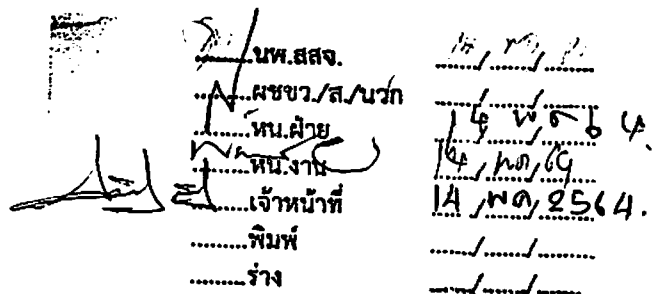 .........นพ.สสจ. ....../....../......
.........ผชชว./ส./นวก ....../....../......
.........หน.ฝ่าย 14 / พค / 64.
.........หน.งาน 14 / พค / 64
.........เจ้าหน้าที่ 14 / พค / 2564.
.........พิมพ์ ....../....../......
.........ร่าง ....../....../......